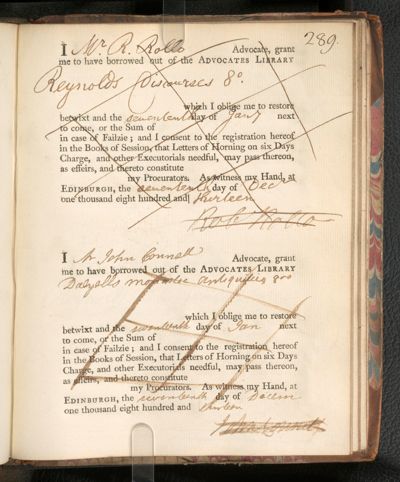 289.
I Mr. R. Rollo Advocate, grant
me to have borrowed out of the ADVOCATES LIBRARY
Reynolds Discourses 8o.
which I oblige me to restore
betwixt and the seventeenth day of Jany next
to come, or the Sum of
in case of Failzie; and I consent to the registration hereof
in the Books of Session, that Letters of Horning on six Days
Charge, and other Executorials needful, may pass thereon,
as effeirs, and thereto constitute
my Procurators. As witness my Hand, at
EDINBURGH, the seventeenth day of Dec
one thousand eight hundred and thirteen
Rob Rollo
I Mr John Connell Advocate, grant
me to have borrowed out of the ADVOCATES LIBRARY
Dalyells antiquities 8vo
which I oblige me to restore
betwixt and the seventeenth day of Jan next
to come, or the Sum of
in case of Failzie; and I consent to the registration hereof
in the Books of Session, that Letters of Horning on six Days
Charge, and other Executorials needful, may pass thereon,
as effeirs, and thereto constitute
my Procurators. As witness my Hand, at
EDINBURGH, the seventeenth day of Decem
one thousand eight hundred and thirteen
John Connell